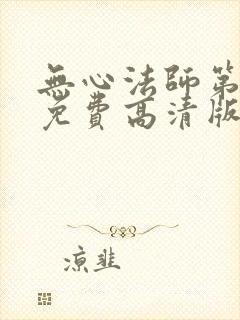 無心法師第
免費高清版
涼韭